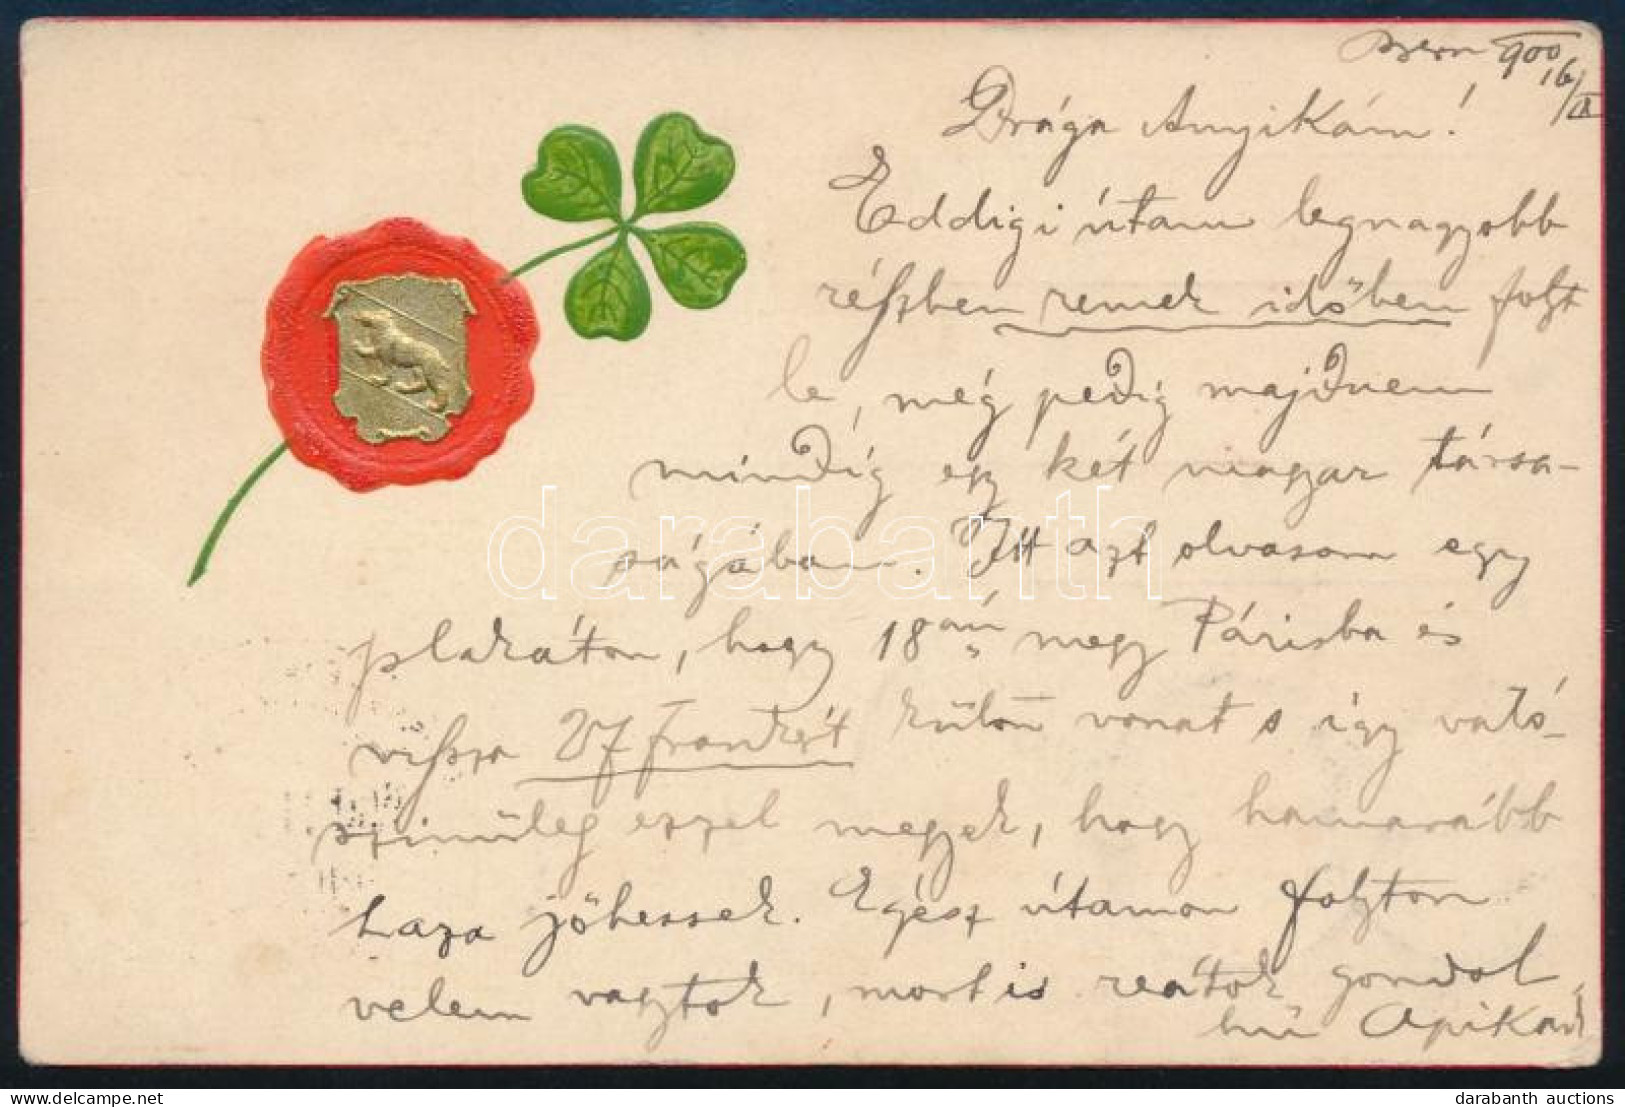 Bern 900 16/IX
Drága Anyikám!
Eddigi útam legnagyobb
részben remek időben folyt
le, még pedig majdnem
mindíg egy két magyar társa-
ságában. Itt azt olvasom egy
plakáton, hogy 18án megy Párisba és
vissza 27 frankért külön vonat s így való-
szinűleg ezzel megyek, hogy hamarább
haza jöhessek. Egész útamon folyton
velem vagytok, most is reátok gondol
hű Apikád
darabanth
darabanth auctions